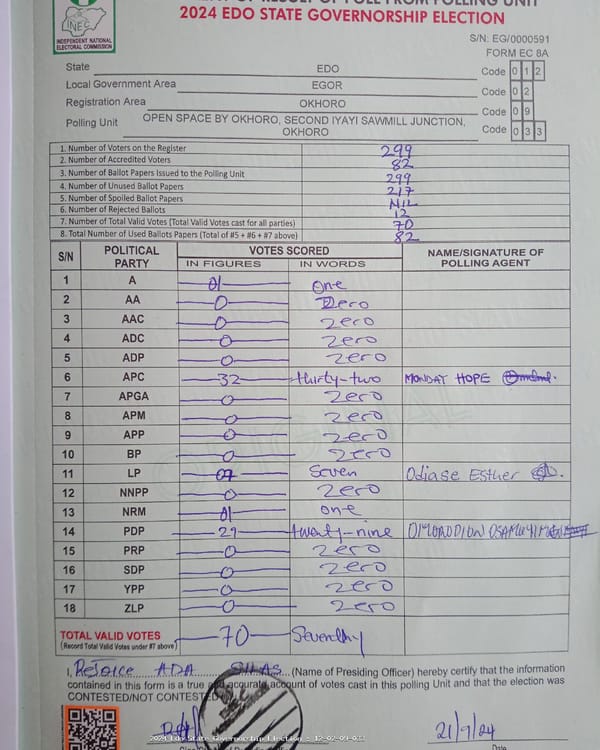 2024 EDO STATE GOVERNORSHIP ELECTION
INEC
INDEPENDENT NATIONAL
ELECTORAL COMMISSION
S/N: EG/0000591
FORM EC 8A
State EDO Code 0 1 2
Local Government Area EGOR Code 0 2
Registration Area OKHORO Code 0 9
Polling Unit OPEN SPACE BY OKHORO, SECOND IYAYI SAWMILL JUNCTION, OKHORO Code 0 3 3
1. Number of Voters on the Register 299
2. Number of Accredited Voters 82
3. Number of Ballot Papers Issued to the Polling Unit 299
4. Number of Unused Ballot Papers 217
5. Number of Spoiled Ballot Papers NIL
6. Number of Rejected Ballots 12
7. Number of Total Valid Votes (Total Valid Votes cast for all parties) 70
8. Total Number of Used Ballots Papers (Total of #5 + #6 + #7 above) 82
S/N POLITICAL PARTY VOTES SCORED NAME/SIGNATURE OF POLLING AGENT
IN FIGURES IN WORDS
1 A 01 One
2 AA 0 Zero
3 AAC 0 zero
4 ADC 0 zero
5 ADP 0 zero
6 APC 32 thirty-two MONDAY HOPE
7 APGA 0 zero
8 APM 0 zero
9 APP 0 zero
10 BP 0 zero
11 LP 07 Seven Odiase Esther
12 NNPP 0 zero
13 NRM 01 one
14 PDP 29 twenty-nine
15 PRP 0 zero
16 SDP 0 zero
17 YPP 0 zero
18 ZLP 0 zero
TOTAL VALID VOTES 70 Seventhy
(Record Total Valid Votes under #7 above)
I, Rejoice ADA SILAS (Name of Presiding Officer) hereby certify that the information
contained in this form is a true and accurate account of votes cast in this polling Unit and that the election was
CONTESTED/NOT CONTESTED
21/9/24
2024 Edo State Governorship Election
Date